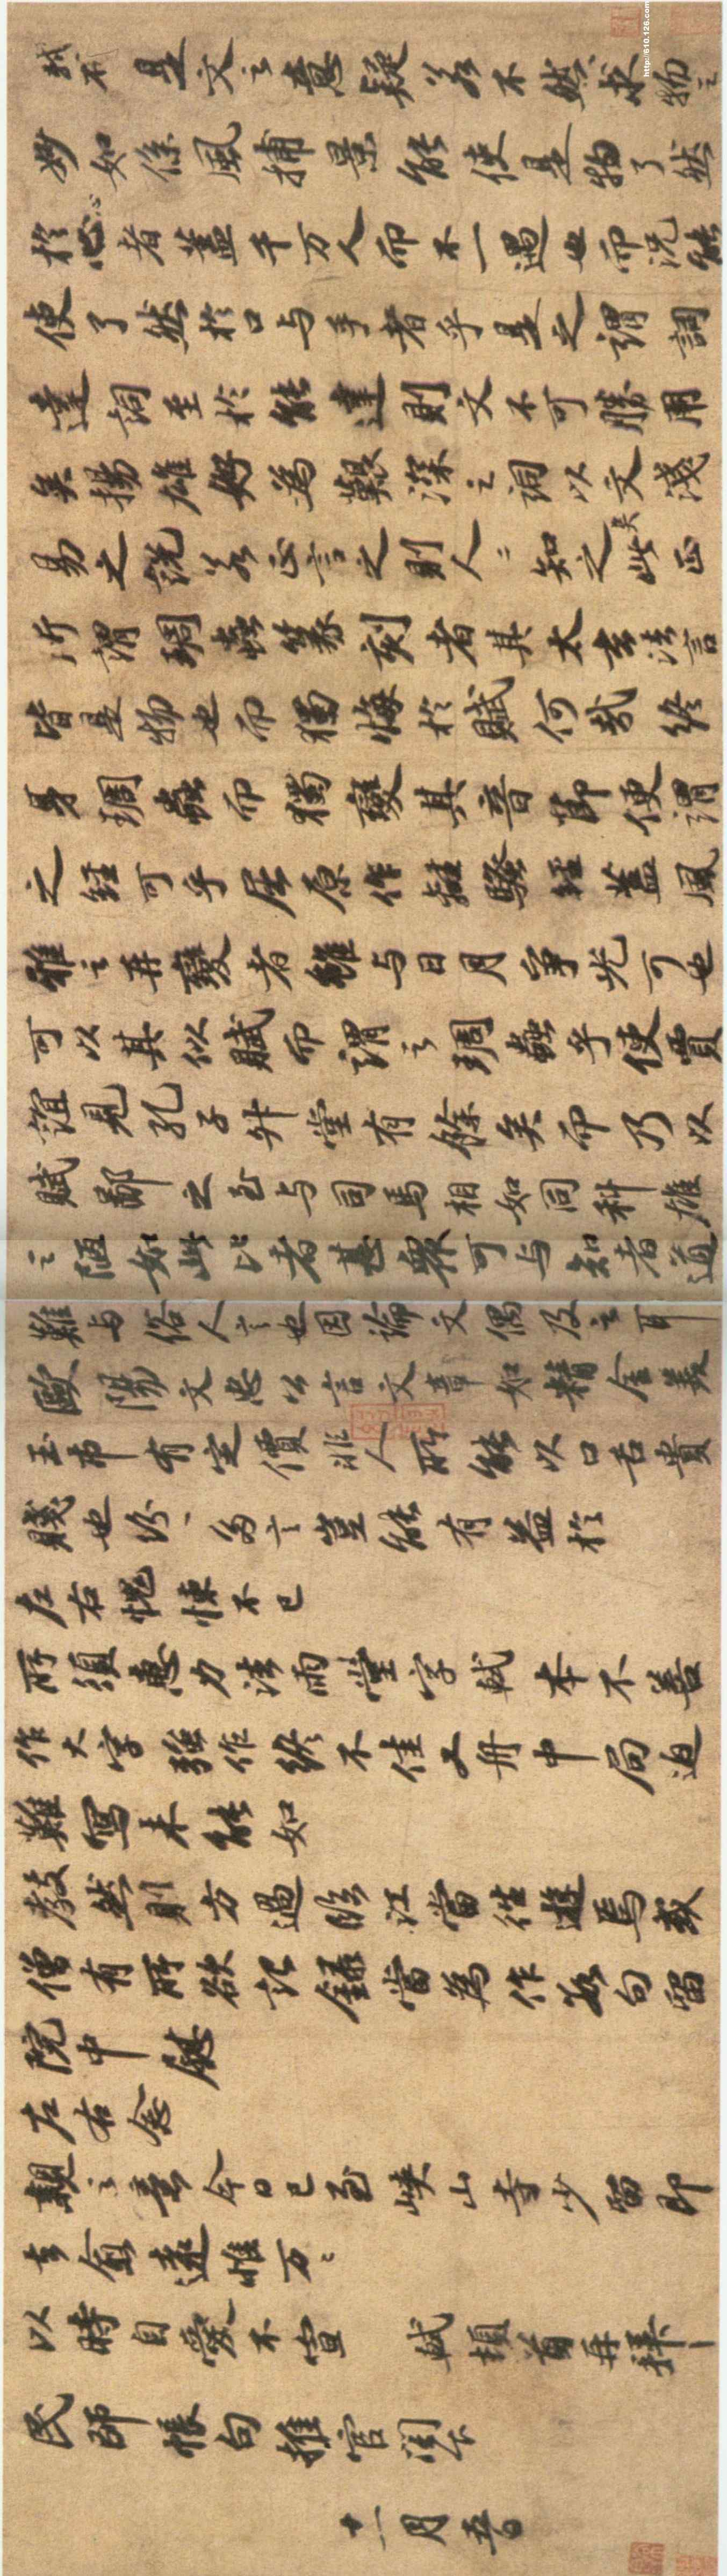 軾不 是文之意疑若不然求物之
妙如係風捕景能使是物了然
於心者蓋千万人而不一遇也而況能
使了然於口与手者乎是之謂詞
達詞至於能達則文不可勝用
矣揚雄好為艱深之詞以文淺
易之說若正言之則人〻知之矣此正
所謂琱蟲篆刻者其太玄法言
皆是物也而獨悔於賦何哉終
身琱蟲而獨變其音節便謂
之經可乎屈原作離騷經蓋風
雅之再變者雖与日月爭光可也
可以其似賦而謂之琱蟲乎使賈
誼見孔子升堂有餘矣而乃以
賦鄙之至与司馬相如同科雄
之陋如此比者甚衆可与知者道
難与俗人言也因論文偶及之耳
歐陽文忠公言文章如精金美
玉市有定價非人所能以口舌貴
賤也紛〻多言豈能有益於
左右愧悚不已
所須惠力法雨堂字軾本不善
作大字強作終不佳又舟中局迫
難寫未能如
教然則方過臨江當往遊焉或
僧有所欲記錄當為作數句留
院中慰
左右念
親之意今日已至峽山寺少留即
去愈遠惟万〻
以時自愛不宣 軾頓首再拜
民師帳句推官閤下
十一月五日
http://610.126.com